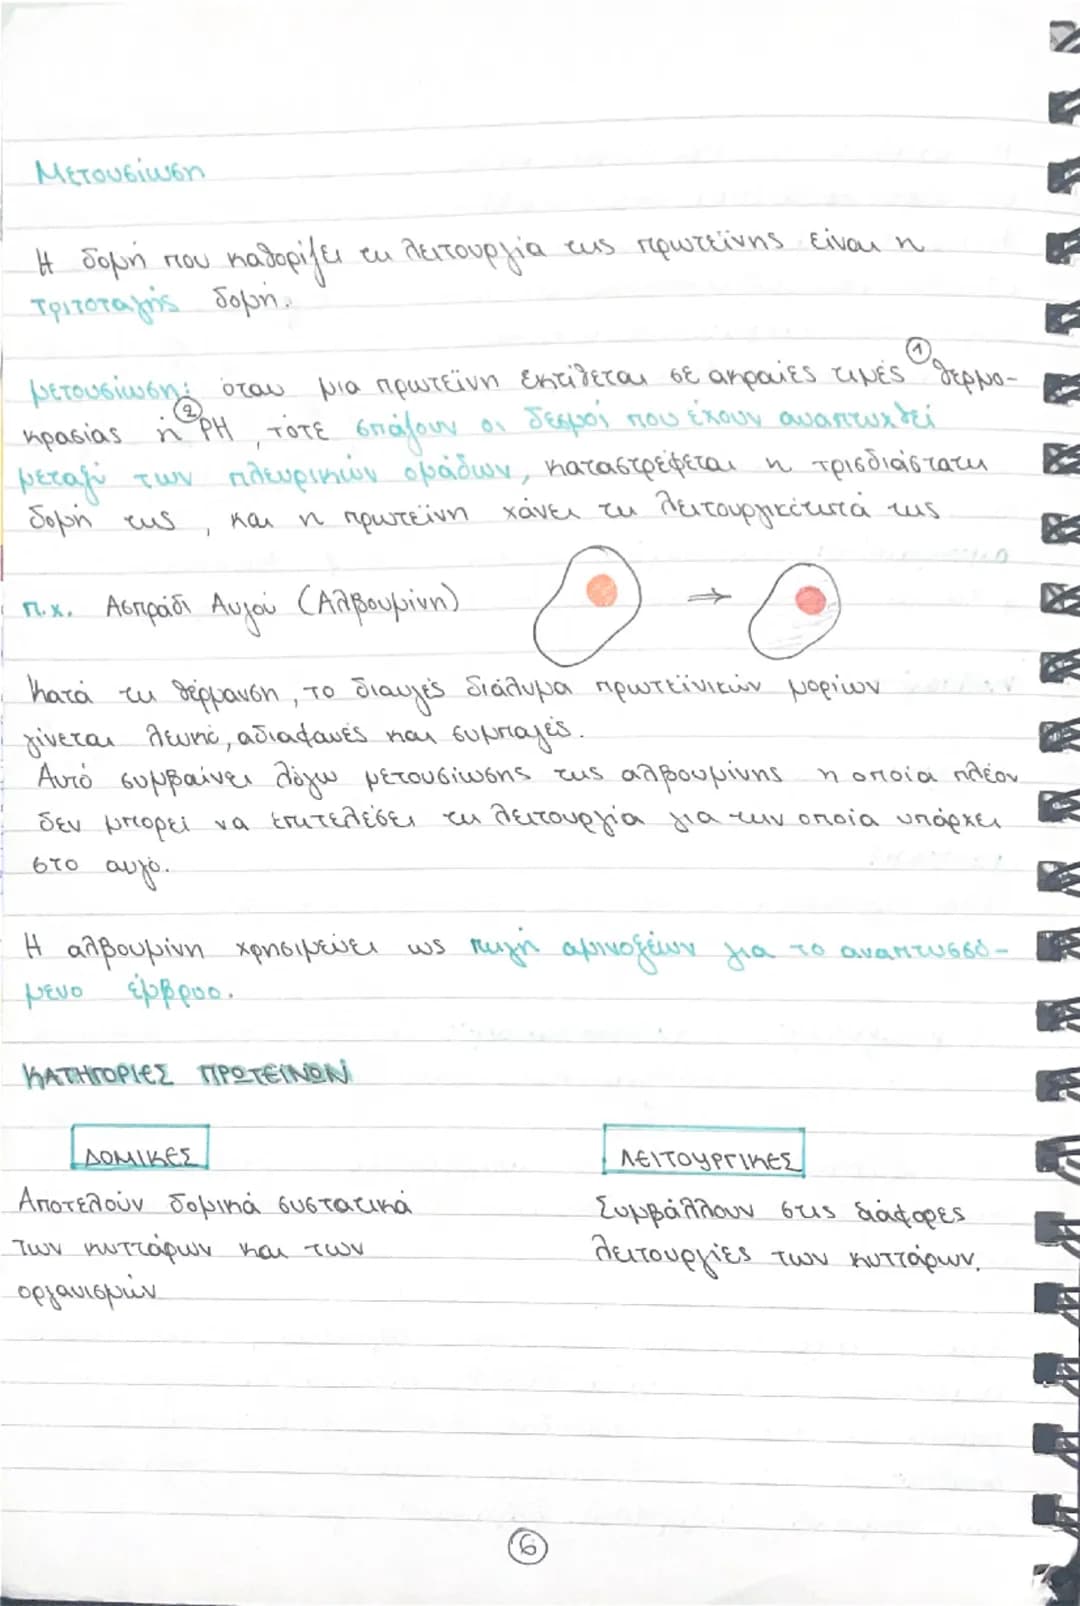 Μετουσίωση
Η δομή που καθορίζει τη λειτουργία της πρωτεΐνης είναι η
τριτοταγής δομή.
μετουσίωση: όταν μια πρωτεΐνη εκτίθεται σε ακραίες τιμές ① θερμο-
κρασίας ή ② PH, τότε σπάζουν οι δεσμοί που έχουν αναπτυχθεί
μεταξύ των πλευρικών ομάδων, καταστρέφεται η τρισδιάστατη
δομή της, και η πρωτεΐνη χάνει τη λειτουργικότητά της
π.χ. Ασπράδι Αυγού (Αλβουμίνη) ⇒
Κατά τη θέρμανση, το διαυγές διάλυμα πρωτεϊνικών μορίων
γίνεται λευκό, αδιαφανές και συμπαγές.
Αυτό συμβαίνει λόγω μετουσίωσης της αλβουμίνης η οποία πλέον
δεν μπορεί να επιτελέσει τη λειτουργία για την οποία υπάρχει
στο αυγό.
Η αλβουμίνη χρησιμεύει ως πηγή αμινοξέων για το αναπτυσσό-
μενο έμβρυο.
ΚΑΤΗΓΟΡΙΕΣ ΠΡΩΤΕΪΝΩΝ
ΔΟΜΙΚΕΣ ΛΕΙΤΟΥΡΓΙΚΕΣ
Αποτελούν δομικά συστατικά Συμβάλλουν στις διάφορες
των κυττάρων και των λειτουργίες των κυττάρων.
οργανισμών
⑥